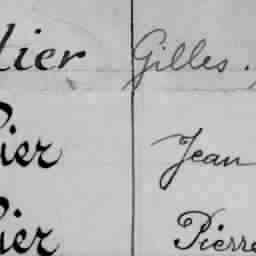 lier Gilles.
ier Jean
ier Pierre